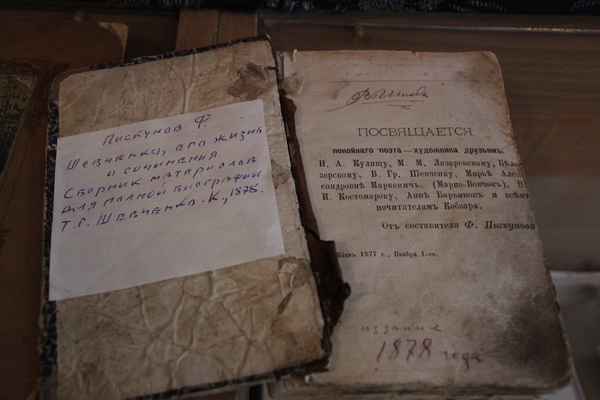 Пискунов Ф.
Шевченко, его жизнь
и сочинения.
Сборник материалов
для полной биографии
Т. Г. Шевченко. К., 1878.
ПОСВЯЩАЕТСЯ
покойнаго поэта—художника друзьямъ:
Н. А. Кулишу, М. М. Лазаревскому, Бѣло
зерскому, В. Гр. Шевченку, Марьѣ Алек
сандровнѣ Маркевичъ. (Марко-Вовчокъ), Н
И. Костомарову, Аннѣ Барвинокъ и всѣмъ
почитателямъ Кобзаря.
Отъ составителя Ф. Пискунова
Кіевъ 1877 г., Ноября 1-го.
издание
1878 года